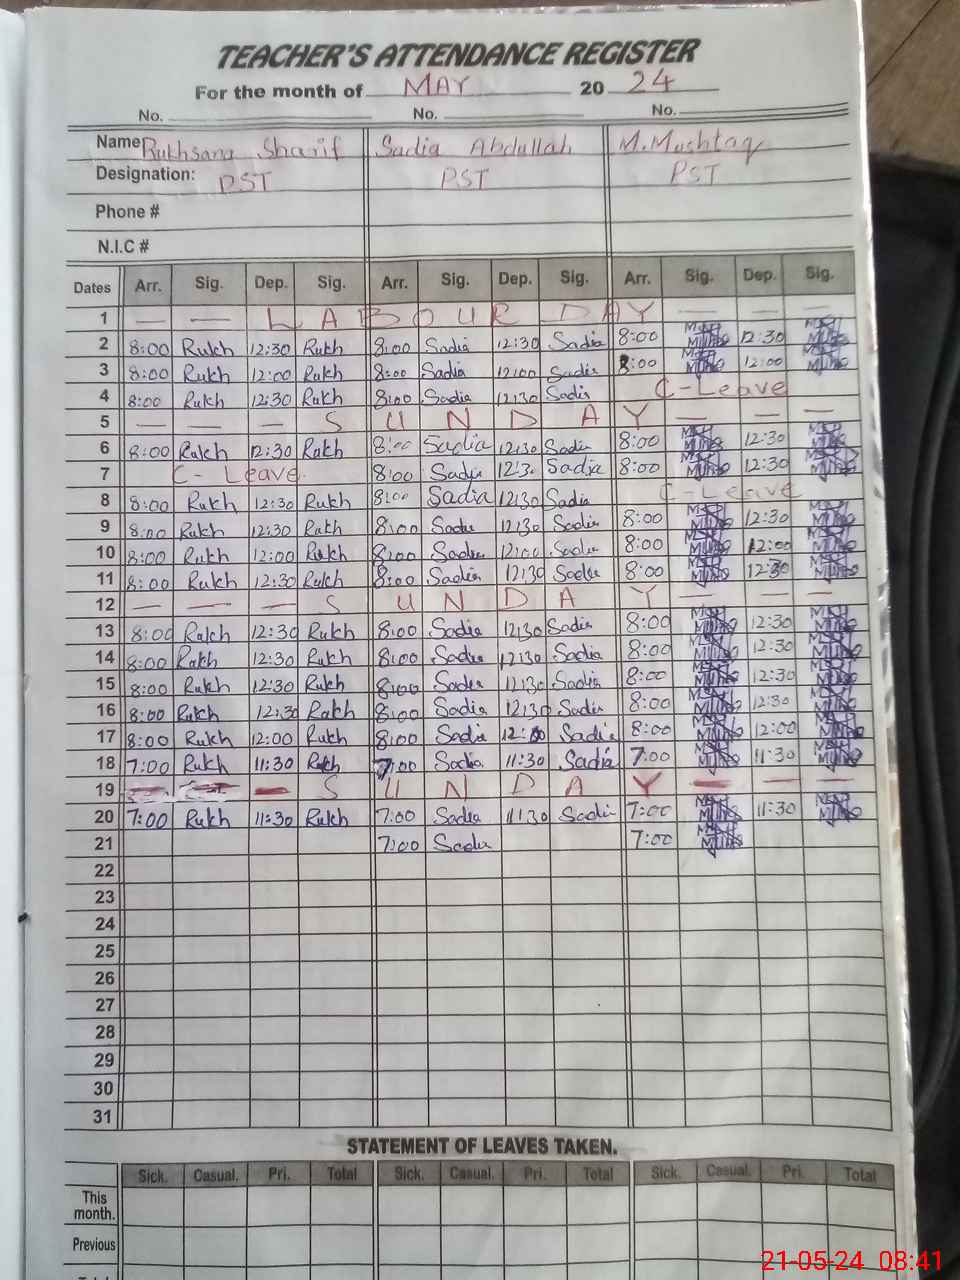 TEACHER'S ATTENDANCE REGISTER
For the month of MAY 20 24
No. No. No.
Name Rukhsana Sharif Sadia Abdullah M. Mushtaq
Designation: PST PST PST
Phone #
N.I.C #
Dates Arr. Sig. Dep. Sig. Arr. Sig. Dep. Sig. Arr. Sig. Dep. Sig.
1 — — L A B O U R D A Y — — —
2 8:00 Rukh 12:30 Rukh 8:00 Sadia 12:30 Sadia 8:00 12:30
3 8:00 Rukh 12:00 Rukh 8:00 Sadia 12:00 Sadia 8:00 12:00
4 8:00 Rukh 12:30 Rukh 8:00 Sadia 12:30 Sadia C-Leave
5 — — — S U N D A Y — — —
6 8:00 Rukh 12:30 Rukh 8:00 Sadia 12:30 Sadia 8:00 12:30
7 C-Leave 8:00 Sadia 12:30 Sadia 8:00 12:30
8 8:00 Rukh 12:30 Rukh 8:00 Sadia 12:30 Sadia C-Leave
9 8:00 Rukh 12:30 Rukh 8:00 Sadia 12:30 Sadia 8:00 12:30
10 8:00 Rukh 12:00 Rukh 8:00 Sadia 12:00 Sadia 8:00 12:00
11 8:00 Rukh 12:30 Rukh 8:00 Sadia 12:30 Sadia 8:00 12:30
12 — — — S U N D A Y — — —
13 8:00 Rukh 12:30 Rukh 8:00 Sadia 12:30 Sadia 8:00 12:30
14 8:00 Rukh 12:30 Rukh 8:00 Sadia 12:30 Sadia 8:00 12:30
15 8:00 Rukh 12:30 Rukh 8:00 Sadia 12:30 Sadia 8:00 12:30
16 8:00 Rukh 12:30 Rukh 8:00 Sadia 12:30 Sadia 8:00 12:30
17 8:00 Rukh 12:00 Rukh 8:00 Sadia 12:00 Sadia 8:00 12:00
18 7:00 Rukh 11:30 Rukh 7:00 Sadia 11:30 Sadia 7:00 11:30
19 — — — S U N D A Y — — —
20 7:00 Rukh 11:30 Rukh 7:00 Sadia 11:30 Sadia 7:00 11:30
21 7:00 Sadia 7:00
22
23
24
25
26
27
28
29
30
31
STATEMENT OF LEAVES TAKEN.
Sick. Casual. Pri. Total Sick. Casual. Pri. Total Sick. Casual. Pri. Total
This month.
Previous
21-05-24 08:41